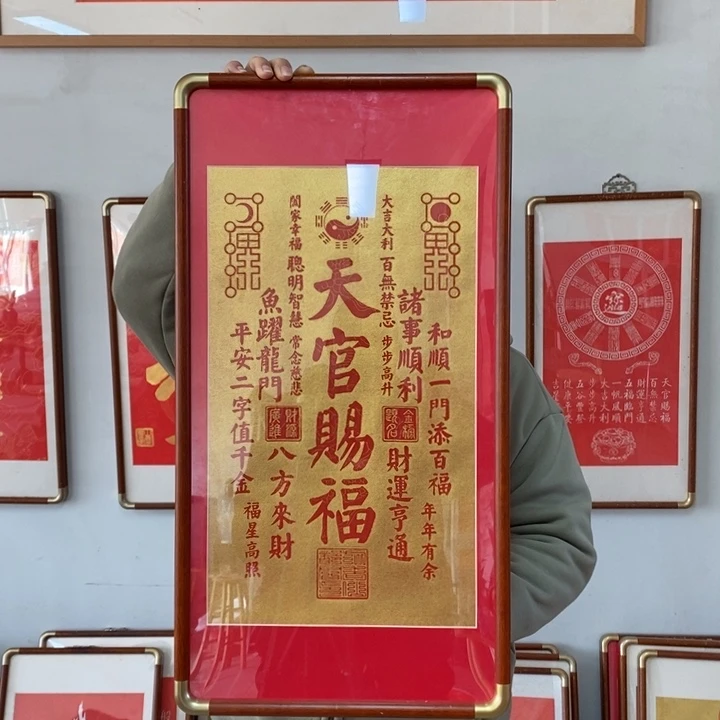 和順一門添百福
年年有余
諸事順利
金榜題名
財運亨通
大吉大利
百無禁忌
步步高升
天官賜福
闔家幸福
聰明智慧
常念慈悲
魚躍龍門
財源廣進
八方來財
平安二字值千金
福星高照
天官賜福
百無禁忌
財運亨通
五福臨門
一帆風順
大吉大利
步步高升
五谷豐登